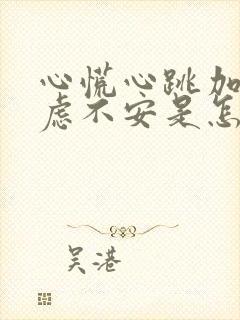 心慌心跳加
虑不安是怎
吴港